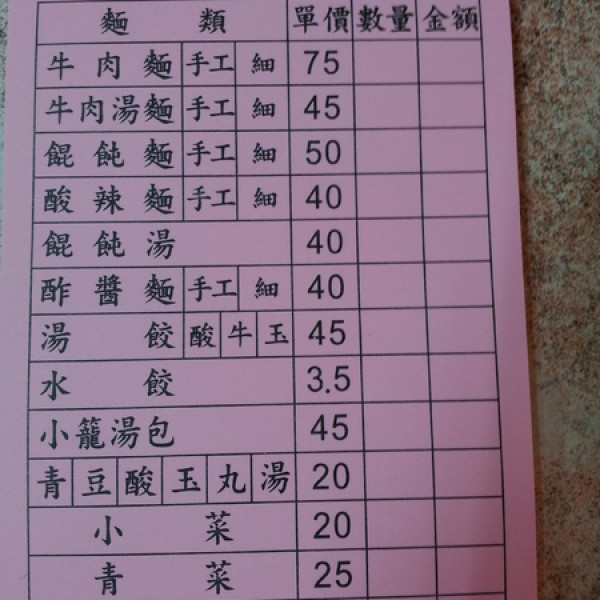 麵類 單價 數量 金額
牛肉麵 手工 細 75
牛肉湯麵 手工 細 45
餛飩麵 手工 細 50
酸辣麵 手工 細 40
餛飩湯 40
酢醬麵 手工 細 40
湯餃 酸 牛 玉 45
水餃 3.5
小籠湯包 45
青 豆 酸 玉 丸 湯 20
小菜 20
青菜 25